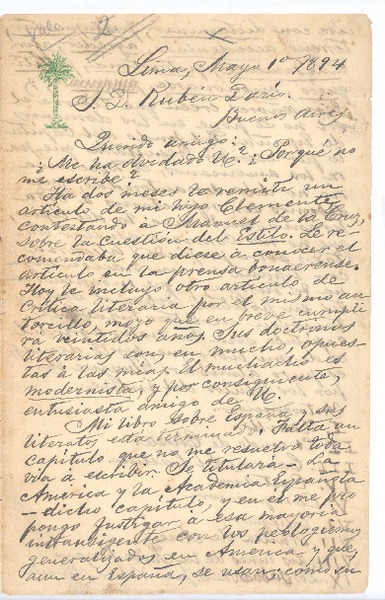 2
Lima, Mayo 1º 1894
S. D. Rubén Darío.
Buenos Aires
Querido amigo:
¿Me ha olvidado U.? ¿Por qué no
me escribe?
Ha dos meses le remití un
artículo de mi hijo Clemente
contestando a Manuel de la Cruz,
sobre la cuestión del Estilo. Le re-
comendaba que diese a conocer el
artículo en la prensa bonaerense.
Hoy le incluyo otro artículo de
crítica literaria por el mismo au-
torcillo, mozo que en breve cumpli-
rá veintidos años. Sus doctrinas
literarias son, en mucho, opues-
tas á las mías. El muchacho es
modernista, y por consiguiente,
entusiasta amigo de U.
Mi libro sobre España y sus
literatos está terminado. Falta un
capítulo que no me resuelvo toda-
vía a escribir. Se titulará - La
América y la Academia Española
- dicho capítulo, y en el me pro-
pongo fustigar a esa mayoría
intransigente con los neologismos
generalizados en América y que,
aun en España, se usan; como su